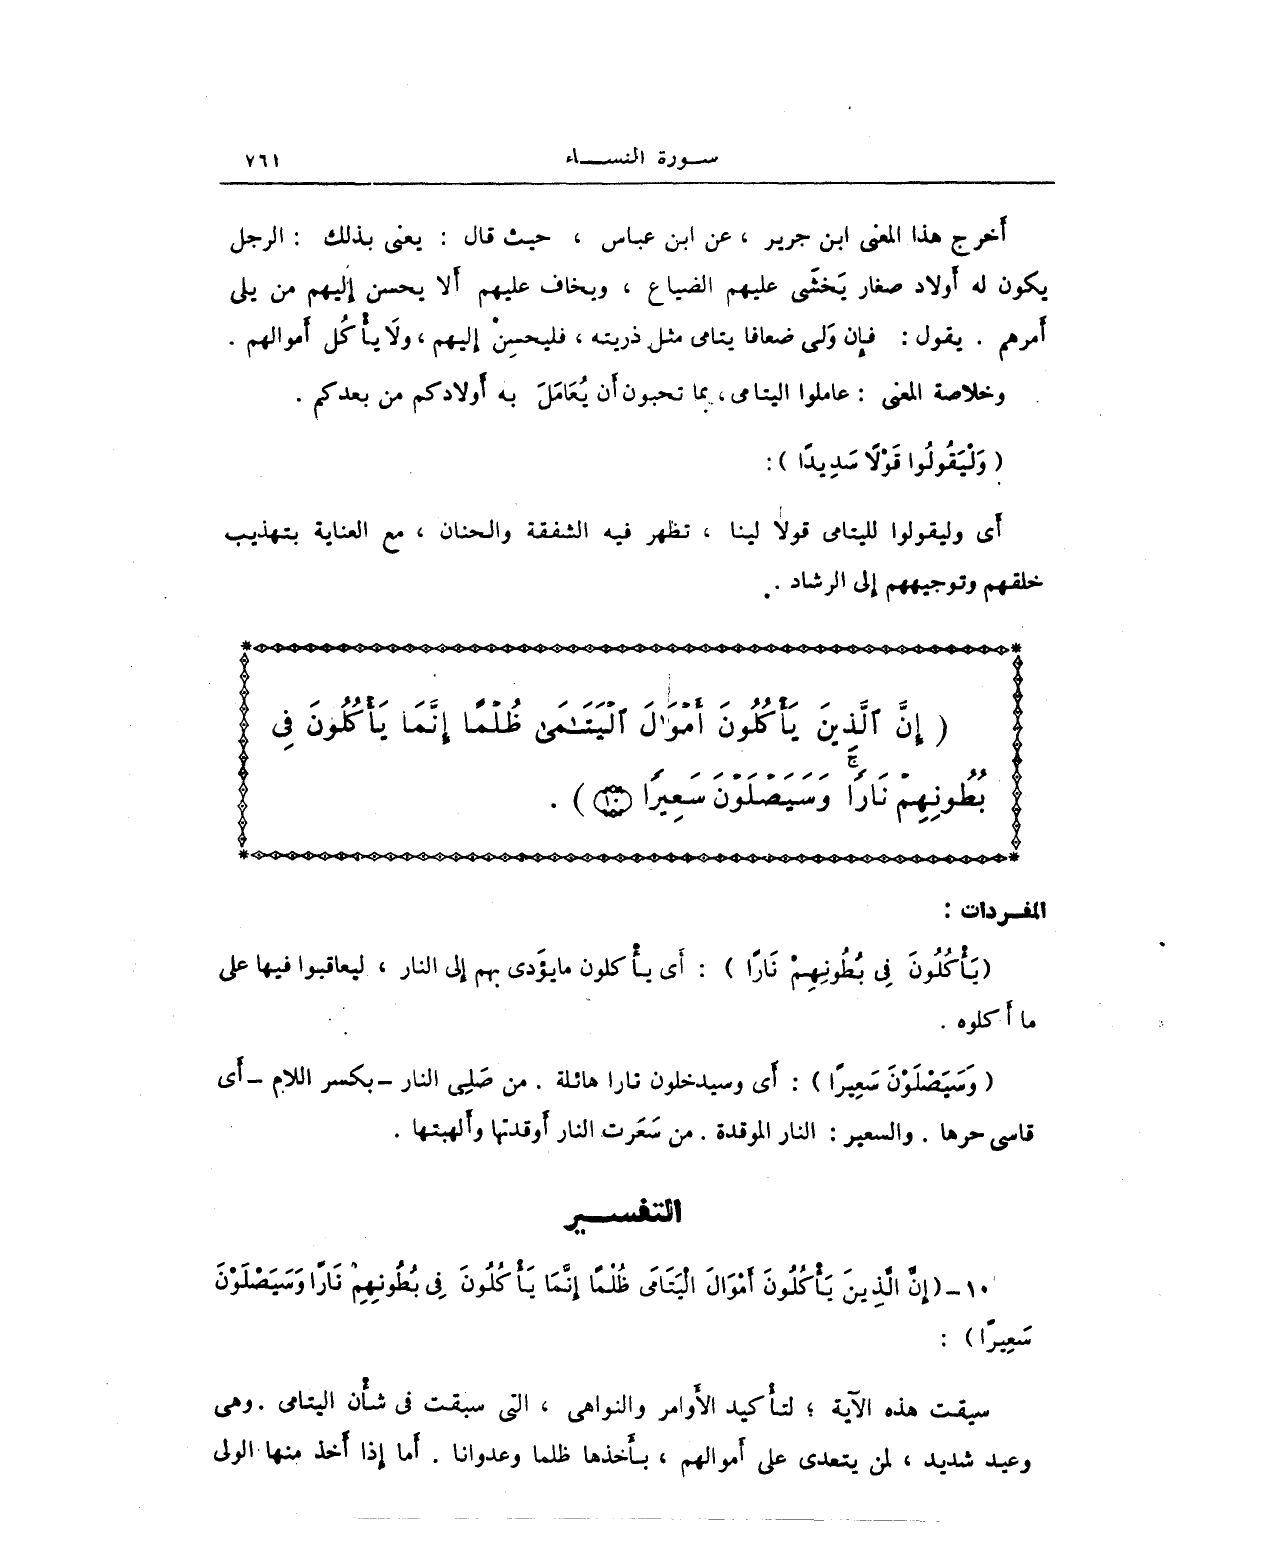 سورة النساء ٧٦١
أخرج هذا المعنى ابن جرير ، عن ابن عباس ، حيث قال : يعنى بذلك : الرجل
يكون له أولاد صغار يَخشَى عليهم الضياع ، ويخاف عليهم ألا يحسن إليهم من يلى
أمرهم . يقول : فإن وَلى ضعافا يتامى مثل ذريته ، فليحسِنْ إليهم ، ولَا يأْكُل أموالهم .
وخلاصة المعنى : عاملوا اليتامى ، بما تحبون أن يُعَامَلَ به أولادكم من بعدكم .
( وَلْيَقُولُوا قَوْلًا سَدِيدًا ) :
أى وليقولوا لليتامى قولا لينا ، تظهر فيه الشفقة والحنان ، مع العناية بتهذيب
خلقهم وتوجيههم إلى الرشاد .
( إِنَّ ٱلَّذِينَ يَأْكُلُونَ أَمْوَٰلَ ٱلْيَتَـٰمَىٰ ظُلْمًا إِنَّمَا يَأْكُلُونَ فِى
بُطُونِهِمْ نَارًا ۖ وَسَيَصْلَوْنَ سَعِيرًا ١٠ ) .
المفردات :
(يَأْكُلُونَ فِى بُطُونِهِمْ نَارًا ) : أى يأْكلون مايؤَدى بهم إلى النار ، ليعاقبوا فيها على
ما أكلوه .
( وَسَيَصْلَوْنَ سَعِيرًا ) : أى وسيدخلون نارا هائلة . من صَلِى النار - بكسر اللام - أى
قاسى حرها . والسعير : النار الموقدة . من سَعَرت النار أوقدتها وألهبتها .
التفسير
١٠ - (إِنَّ الَّذِينَ يَأْكُلُونَ أَمْوَالَ الْيَتَامَى ظُلْمًا إِنَّمَا يَأْكُلُونَ فِى بُطُونِهِمْ نَارًا وَسَيَصْلَوْنَ
سَعِيرًا ) :
سيقت هذه الآية ؛ لتأْكيد الأَوامر والنواهى ، التى سبقت فى شأْن اليتامى . وهى
وعيد شديد ، لمن يتعدى على أموالهم ، بأَخذها ظلما وعدوانا . أما إذا أخذ منها الولى